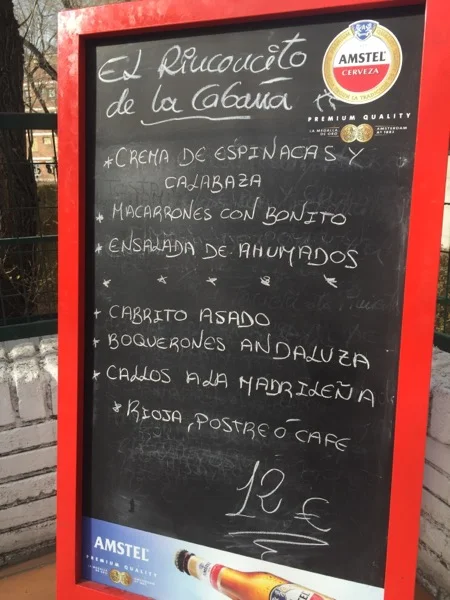 El Rinconcito
de la Cabaña
AMSTEL
CERVEZA
PREMIUM QUALITY
LA MEDALLA
DE ORO
AMSTERDAM
Nº 1883
* CREMA DE ESPINACAS Y
CALABAZA
* MACARRONES CON BONITO
* ENSALADA DE AHUMADOS
* * * * *
* CABRITO ASADO
* BOQUERONES ANDALUZA
* CALLOS A LA MADRILEÑA
* RIOJA, POSTRE Ó CAFE
12 €
AMSTEL
PREMIUM QUALITY